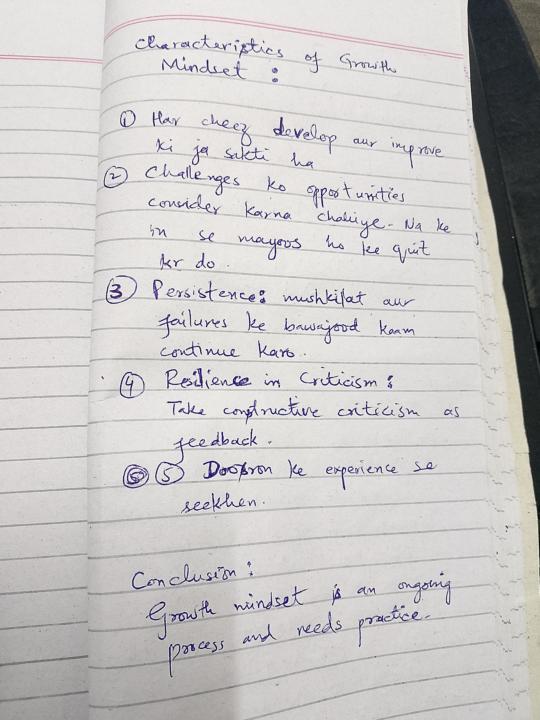 Characteristics of Growth
Mindset :
① Har cheez develop aur improve
ki ja sakti ha
② Challenges ko opportunities
consider karna chahiye. Na ke
in se mayoos ho ke quit
kr do.
③ Persistence: mushkilat aur
failures ke bawajood kaam
continue karo.
④ Resilience in Criticism :
Take constructive criticism as
feedback.
⑤ Doosron ke experience se
seekhen.
Conclusion :
Growth mindset is an ongoing
process and needs practice.